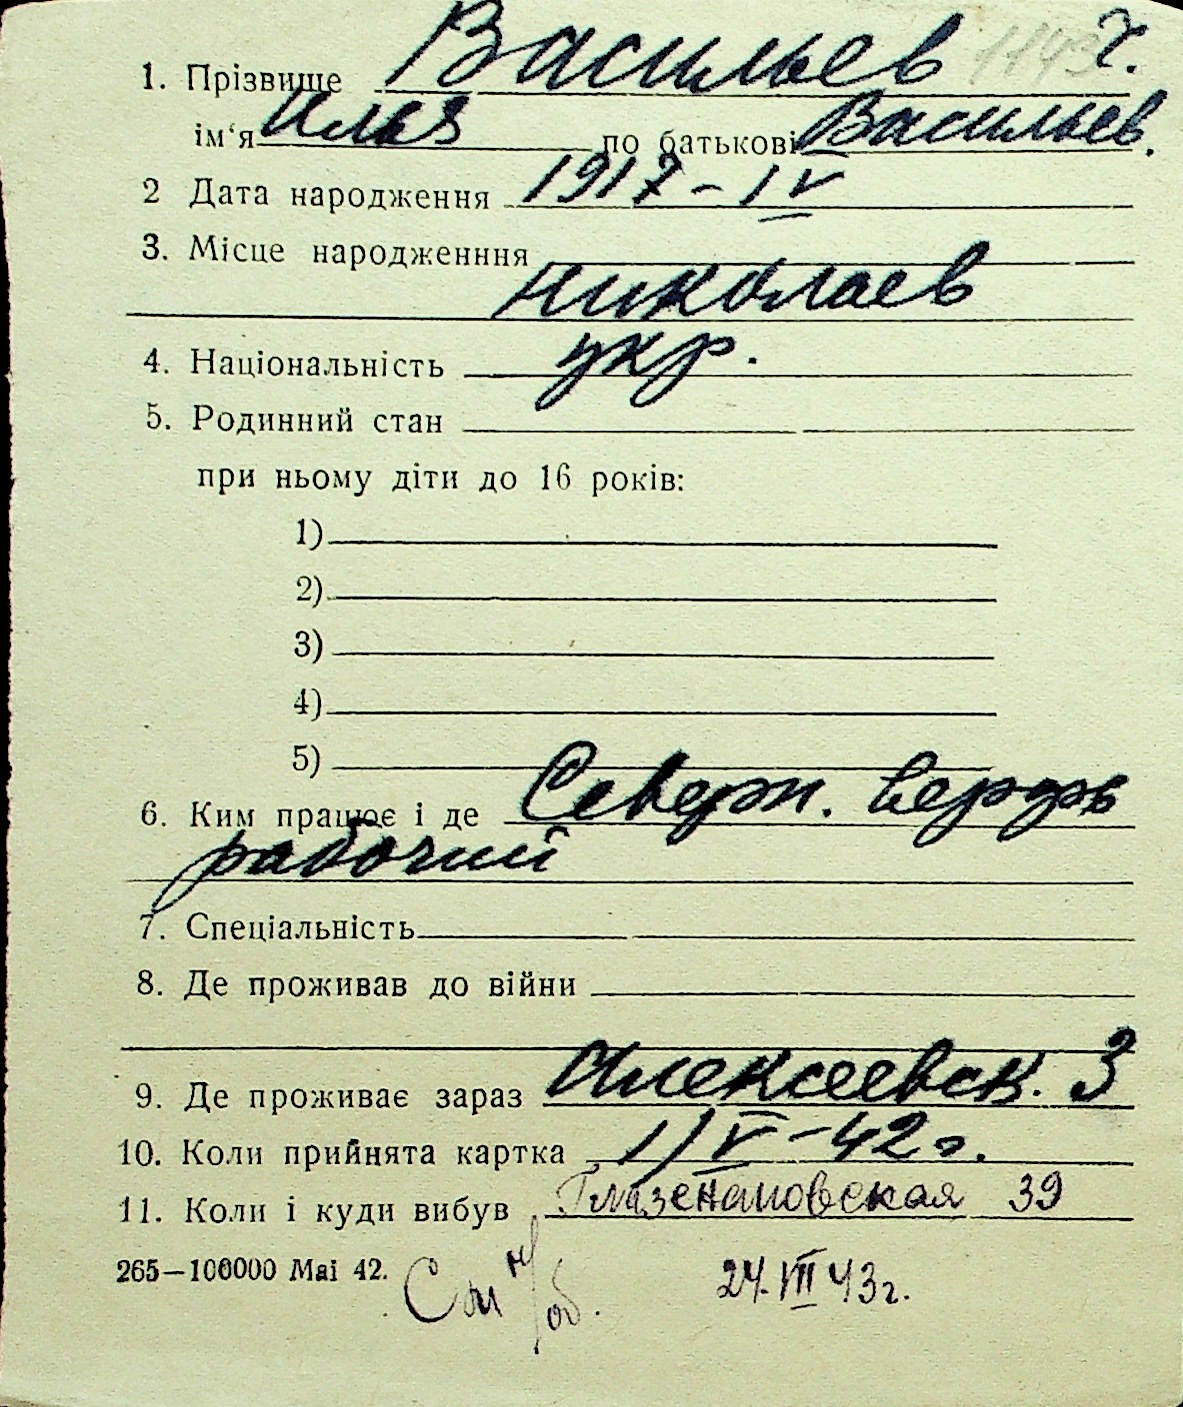 1143 ч.
1. Прізвище Васильев
ім‘я Илья по батькові Васильев.
2 Дата народження 1917 – IV
3. Місце народженння
Николаев
4. Національність укр.
5. Родинний стан
при ньому діти до 16 років:
1)
2)
3)
4)
5)
6. Ким працює і де Северн. верфь
рабочий
7. Спеціальність
8. Де проживав до війни
9. Де проживає зараз Алексеевск. 3
10. Коли прийнята картка 1/V – 42 г.
11. Коли і куди вибув Глазенаповская 39
265—100000 Mai 42. См н/об. 24.VIII 43г.